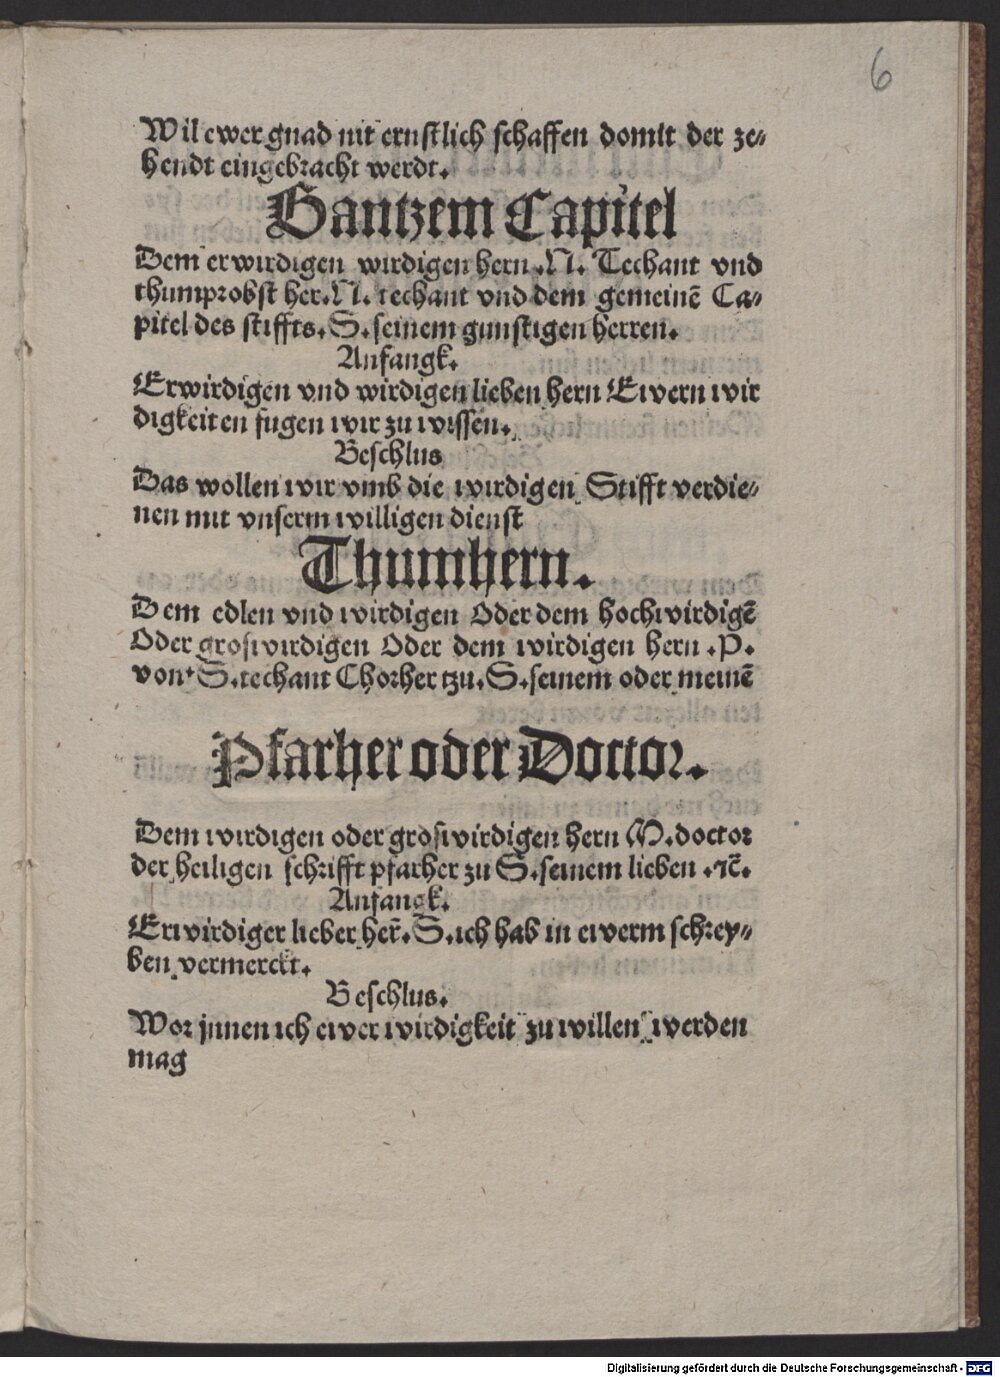 6
Wil ewer gnad nit ernstlich schaffen domit der ze-
hendt eingebracht werdt.
Gantzem Capitel
Dem erwirdigen wirdigen hern .N. Techant vnd
thumprobst her. N. techant vnd dem gemeinē Ca-
pitel des stiffts. S. seinem gunstigen herren.
Anfangk.
Erwirdigen vnd wirdigen lieben hern Ewern wir
digkeiten fugen wir zu wissen.
Beschlus
Das wollen wir vmb die wirdigen Stifft verdie-
nen mit vnserm willigen dienst
Thumhern.
Dem edlen vnd wirdigen Oder dem hochwirdigē
Oder groswirdigen Oder dem wirdigen hern .P.
von. S. techant Chorher tzu. S. seinem oder meinē
Pfarher oder Doctor.
Dem wirdigen oder groswirdigen hern M. doctor
der heiligen schrifft pfarher zu S. seinem lieben .⁊c̄.
Anfangk.
Erwirdiger lieber her̄. S. ich hab in ewerm schrey-
ben vermerckt.
Beschlus.
Wor jnnen ich ewer wirdigkeit zu willen werden
mag
Digitalisierung gefördert durch die Deutsche Forschungsgemeinschaft - DFG